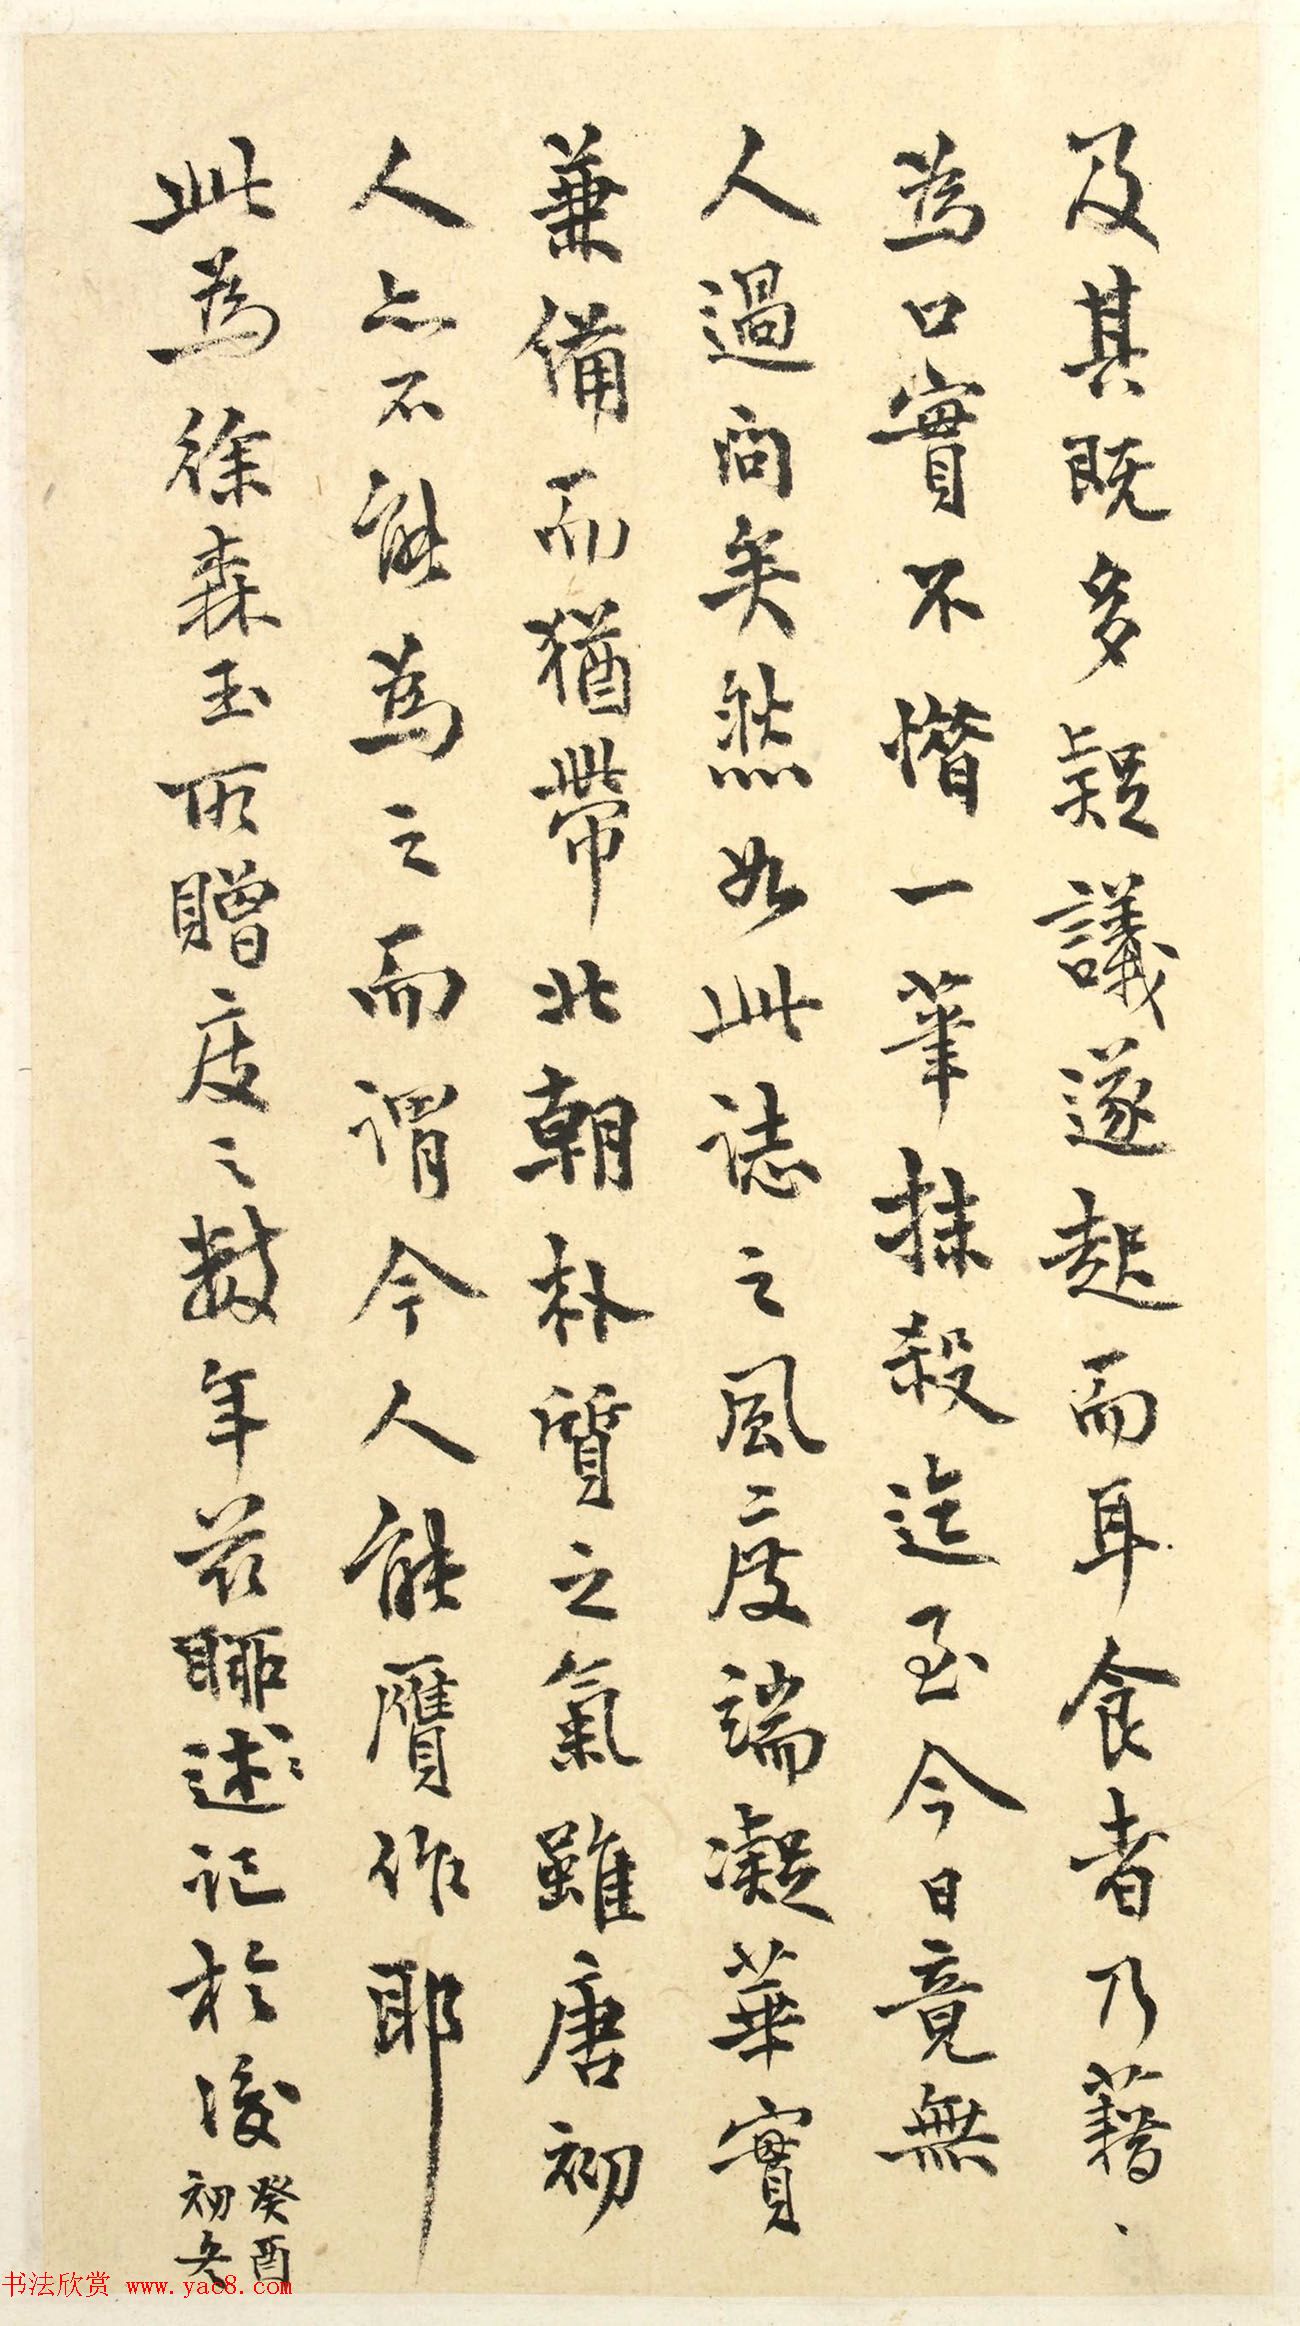 及其既多疑議遂起而耳食者乃藉、
為口實不惜一筆抹殺迄至今日竟無
人過問矣然如此誌之風度端凝華實
兼備而猶帶北朝朴質之氣雖唐初
人亦不能為之而謂今人能贋作耶
此為徐森玉所贈度之數年茲聊述記於後
癸酉
初冬
书法欣赏 www.yac8.com